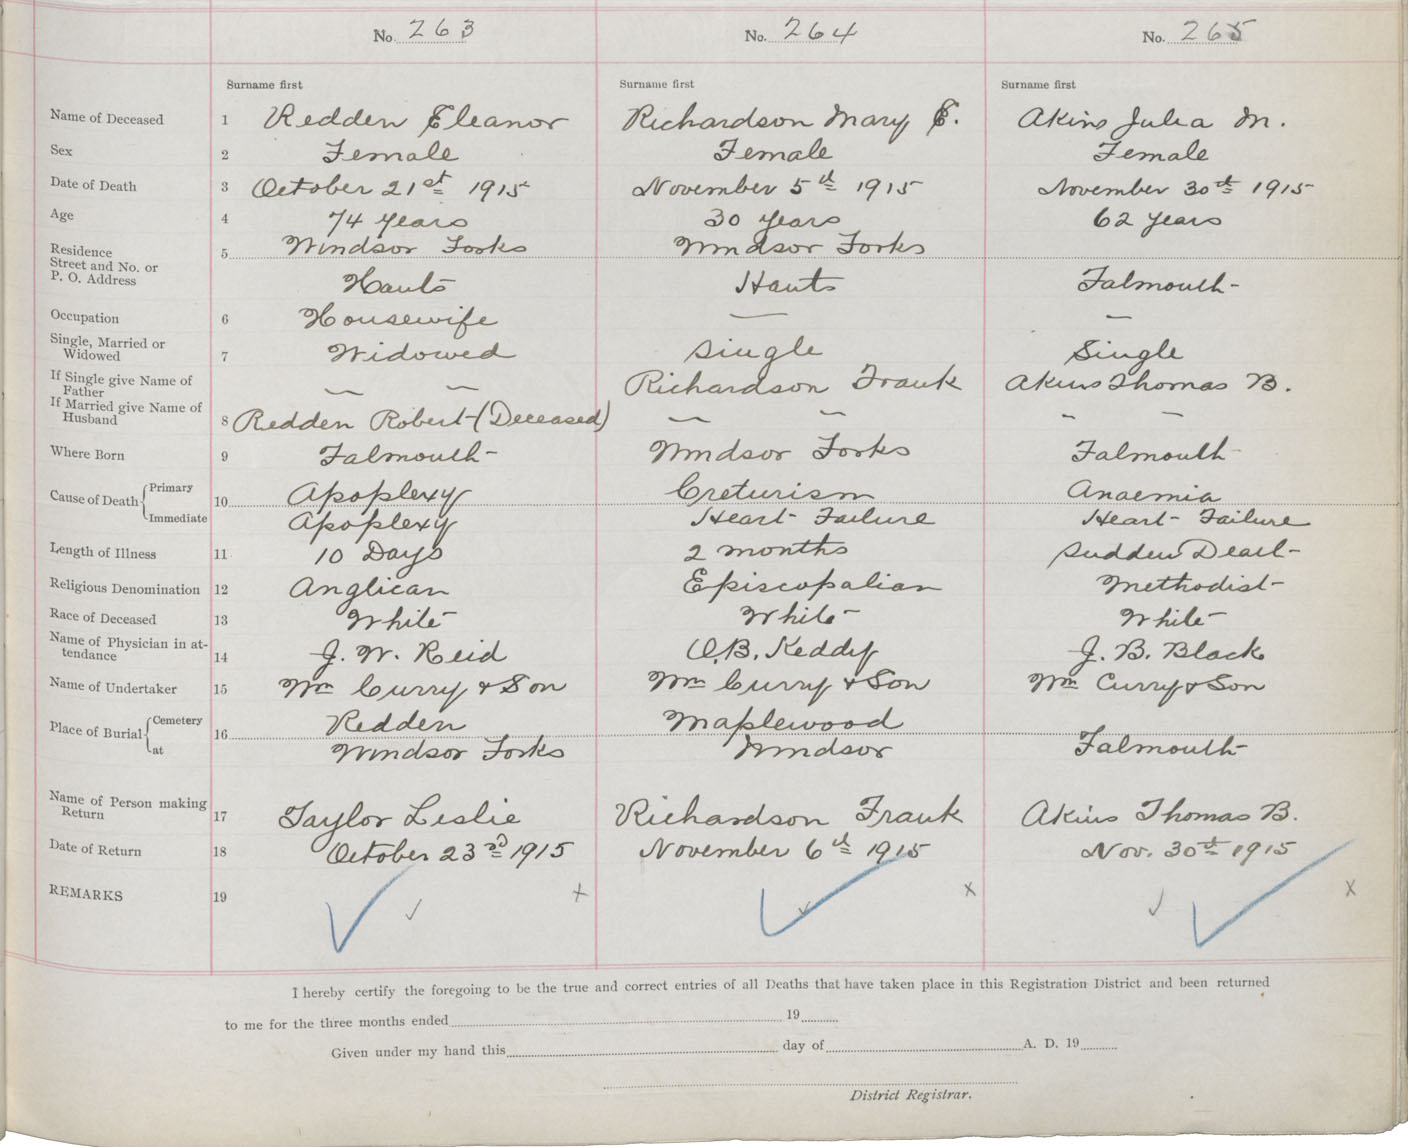 No. 263 No. 264 No. 265
Surname first Surname first Surname first
Name of Deceased 1 Redden Eleanor Richardson Mary E. Akins Julia M.
Sex 2 Female Female Female
Date of Death 3 October 21st 1915 November 5th 1915 November 30th 1915
Age 4 74 years 30 years 62 years
Residence 5 Windsor Forks Windsor Forks
Street and No. or
P. O. Address Hants Hants Falmouth
Occupation 6 Housewife — —
Single, Married or
Widowed 7 Widowed single Single
If Single give Name of
Father — — Richardson Frank Akins Thomas B.
If Married give Name of
Husband 8 Redden Robert (Deceased) — — - -
Where Born 9 Falmouth Windsor Forks Falmouth
Cause of Death Primary 10 Apoplexy Creturism Anaemia
Immediate Apoplexy Heart Failure Heart Failure
Length of Illness 11 10 Days 2 months sudden Deatt
Religious Denomination 12 Anglican Episcopalian Methodist
Race of Deceased 13 White White White
Name of Physician in at-
tendance 14 J. W. Reid O.B. Keddy J. B. Black
Name of Undertaker 15 Wm Curry & Son Wm Curry & Son Wm Curry & Son
Place of Burial Cemetery 16 Redden Maplewood
at Windsor Forks Windsor Falmouth
Name of Person making
Return 17 Taylor Leslie Richardson Frank Akins Thomas B.
Date of Return 18 October 23rd 1915 November 6th 1915 Nov. 30th 1915
REMARKS 19 ✓ ✓ x ✓ ✓ x ✓ ✓ x
I hereby certify the foregoing to be the true and correct entries of all Deaths that have taken place in this Registration District and been returned
to me for the three months ended 19
Given under my hand this day of A. D. 19
District Registrar.